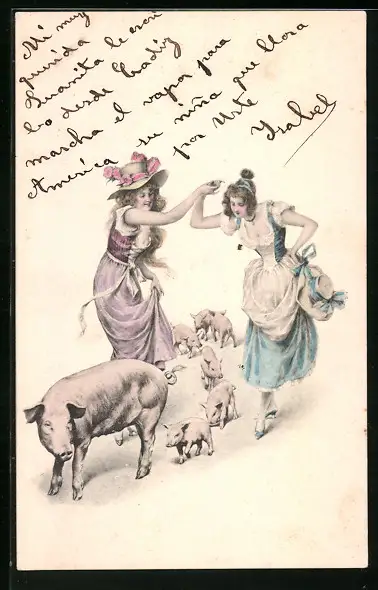 Mi muy
querida
Juanita le escri
bo desde Cadiz
marcha el vapor para
America su niña que llora
por Uste
Isabel